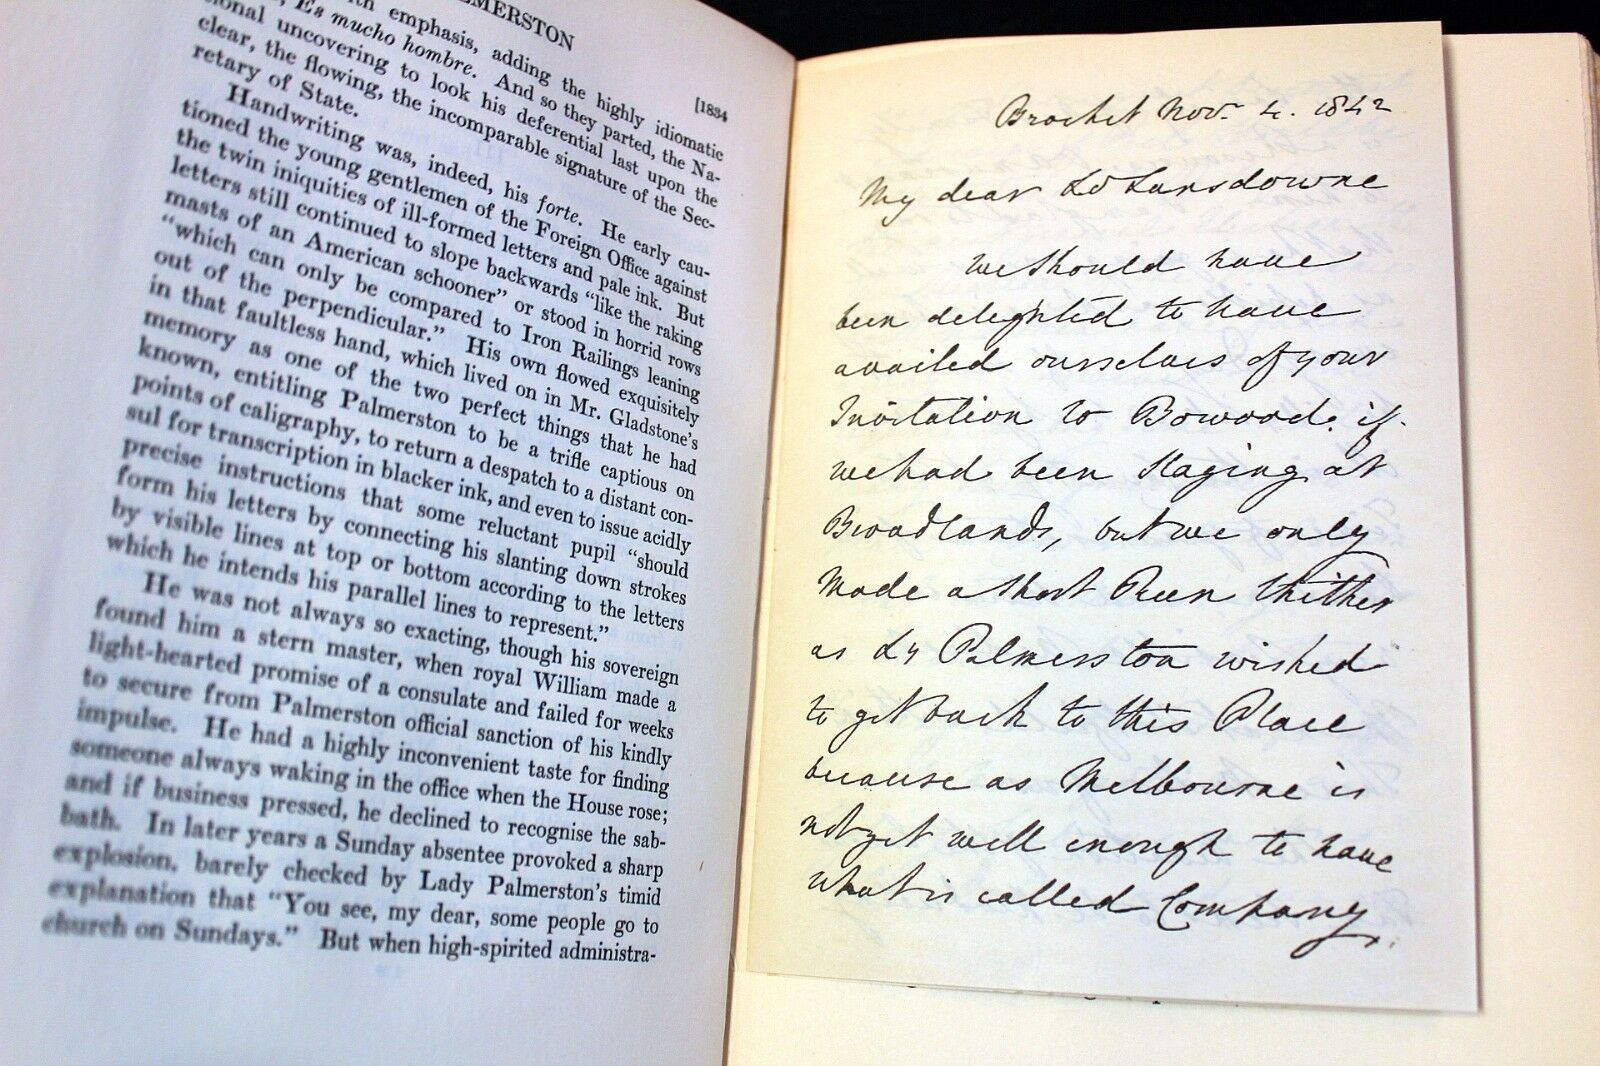 PALMERSTON
[1834
with emphasis, adding the highly idiomatic
Es mucho hombre. And so they parted, the Na-
tional uncovering to look his deferential last upon the
clear, the flowing, the incomparable signature of the Sec-
retary of State.
Handwriting was, indeed, his forte. He early cau-
tioned the young gentlemen of the Foreign Office against
the twin iniquities of ill-formed letters and pale ink. But
letters still continued to slope backwards "like the raking
masts of an American schooner" or stood in horrid rows
"which can only be compared to Iron Railings leaning
out of the perpendicular." His own flowed exquisitely
in that faultless hand, which lived on in Mr. Gladstone's
memory as one of the two perfect things that he had
known, entitling Palmerston to be a trifle captious on
points of caligraphy, to return a despatch to a distant con-
sul for transcription in blacker ink, and even to issue acidly
precise instructions that some reluctant pupil "should
form his letters by connecting his slanting down strokes
by visible lines at top or bottom according to the letters
which he intends his parallel lines to represent."
He was not always so exacting, though his sovereign
found him a stern master, when royal William made a
light-hearted promise of a consulate and failed for weeks
to secure from Palmerston official sanction of his kindly
impulse. He had a highly inconvenient taste for finding
someone always waking in the office when the House rose;
and if business pressed, he declined to recognise the sab-
bath. In later years a Sunday absentee provoked a sharp
explosion, barely checked by Lady Palmerston's timid
explanation that "You see, my dear, some people go to
church on Sundays." But when high-spirited administra-
Brocket Nov. 4. 1842
My dear Ld Lansdowne
We should have
been delighted to have
availed ourselves of your
Invitation to Bowood. if
we had been staying at
Broadlands, but we only
made a short Run thither
as Ld Palmerston wished
to get back to this Place
because as Melbourne is
not yet well enough to have
what is called Company,